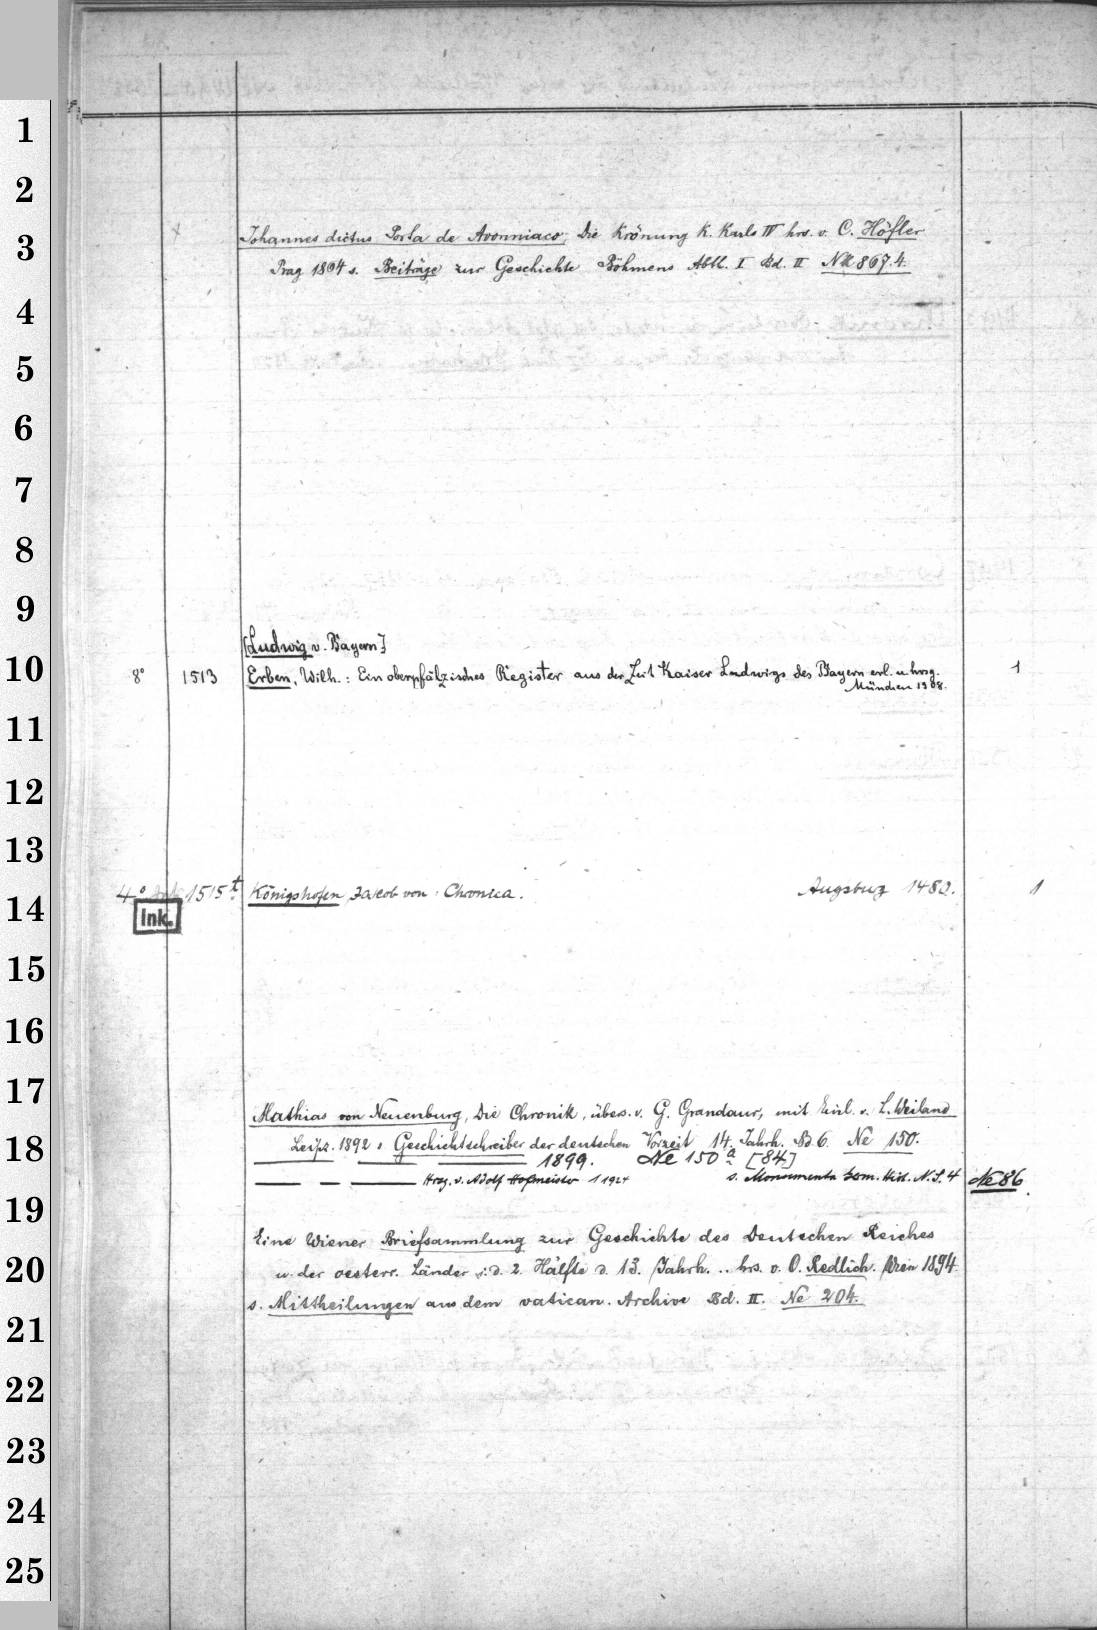 1
2
3
Johannes dictus Porta de Avonniaco, Die Krönung K. Karls IV hrs. v. C. Höfler
Prag 1864 s. Beiträge zur Geschichte Böhmens Abtl. I Bd. II 867.4.
4
5
6
7
8
9
[Ludwig v. Bayern]
10
8° 1513 Erben, Wilh.: Ein oberpfälzisches Register aus der Zeit Kaiser Ludwigs des Bayern erl. u. hrsg. 1
München 1908.
11
12
13
14
4° 1515t Königshofen Jacob von: Chronica. Augsburg 1482. 1
Ink.
15
16
17
Mathias von Neuenburg, Die Chronik, übers. v. G. Grandaur, mit Einl. v. L. Weiland
18
Leipz. 1892 s Geschichtschreiber der deutschen Vorzeit 14. Jahrh. Bd 6. Ne 150.
— — — 1899. Ne 150a [84]
— — — Hrsg. v. Adolf Hofmeister 1 1924 s. Monumenta Germ. Hist. N.S. 4 Ne 86.
19
Eine Wiener Briefsammlung zur Geschichte des Deutschen Reiches
20
u. der oesterr. Länder i. d. 2. Hälfte d. 13. Jahrh. .. hrs. v. O. Redlich. Wien 1894
s. Mittheilungen aus dem vatican. Archive Bd. II. Ne 204.
21
22
23
24
25